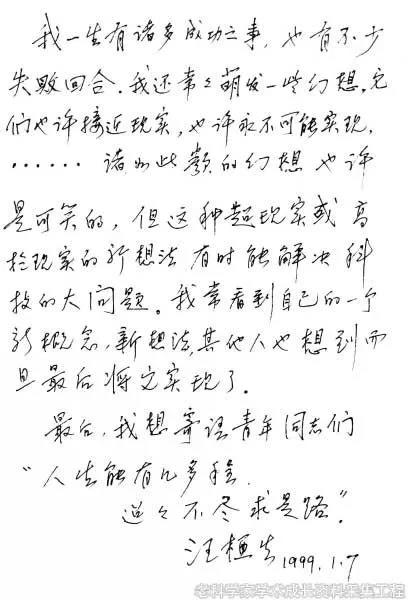 我一生有诸多成功之事，也有不少
失败回合．我还常々萌发一些幻想，它
们也许接近现实，也许永不可能实现，
……诸如此类的幻想也许
是可笑的，但这种超现实或高
于现实的新想法有时能解决科
技的大问题。我常看到自己的一个
新概念，新想法，其他人也想到而
且最后将它实现了。
最后，我想寄语青年同志们
“人生能有几多程．
迢々不尽求是路”．
汪槱生 1999.1.7
老科学家学术成长资料采集工程